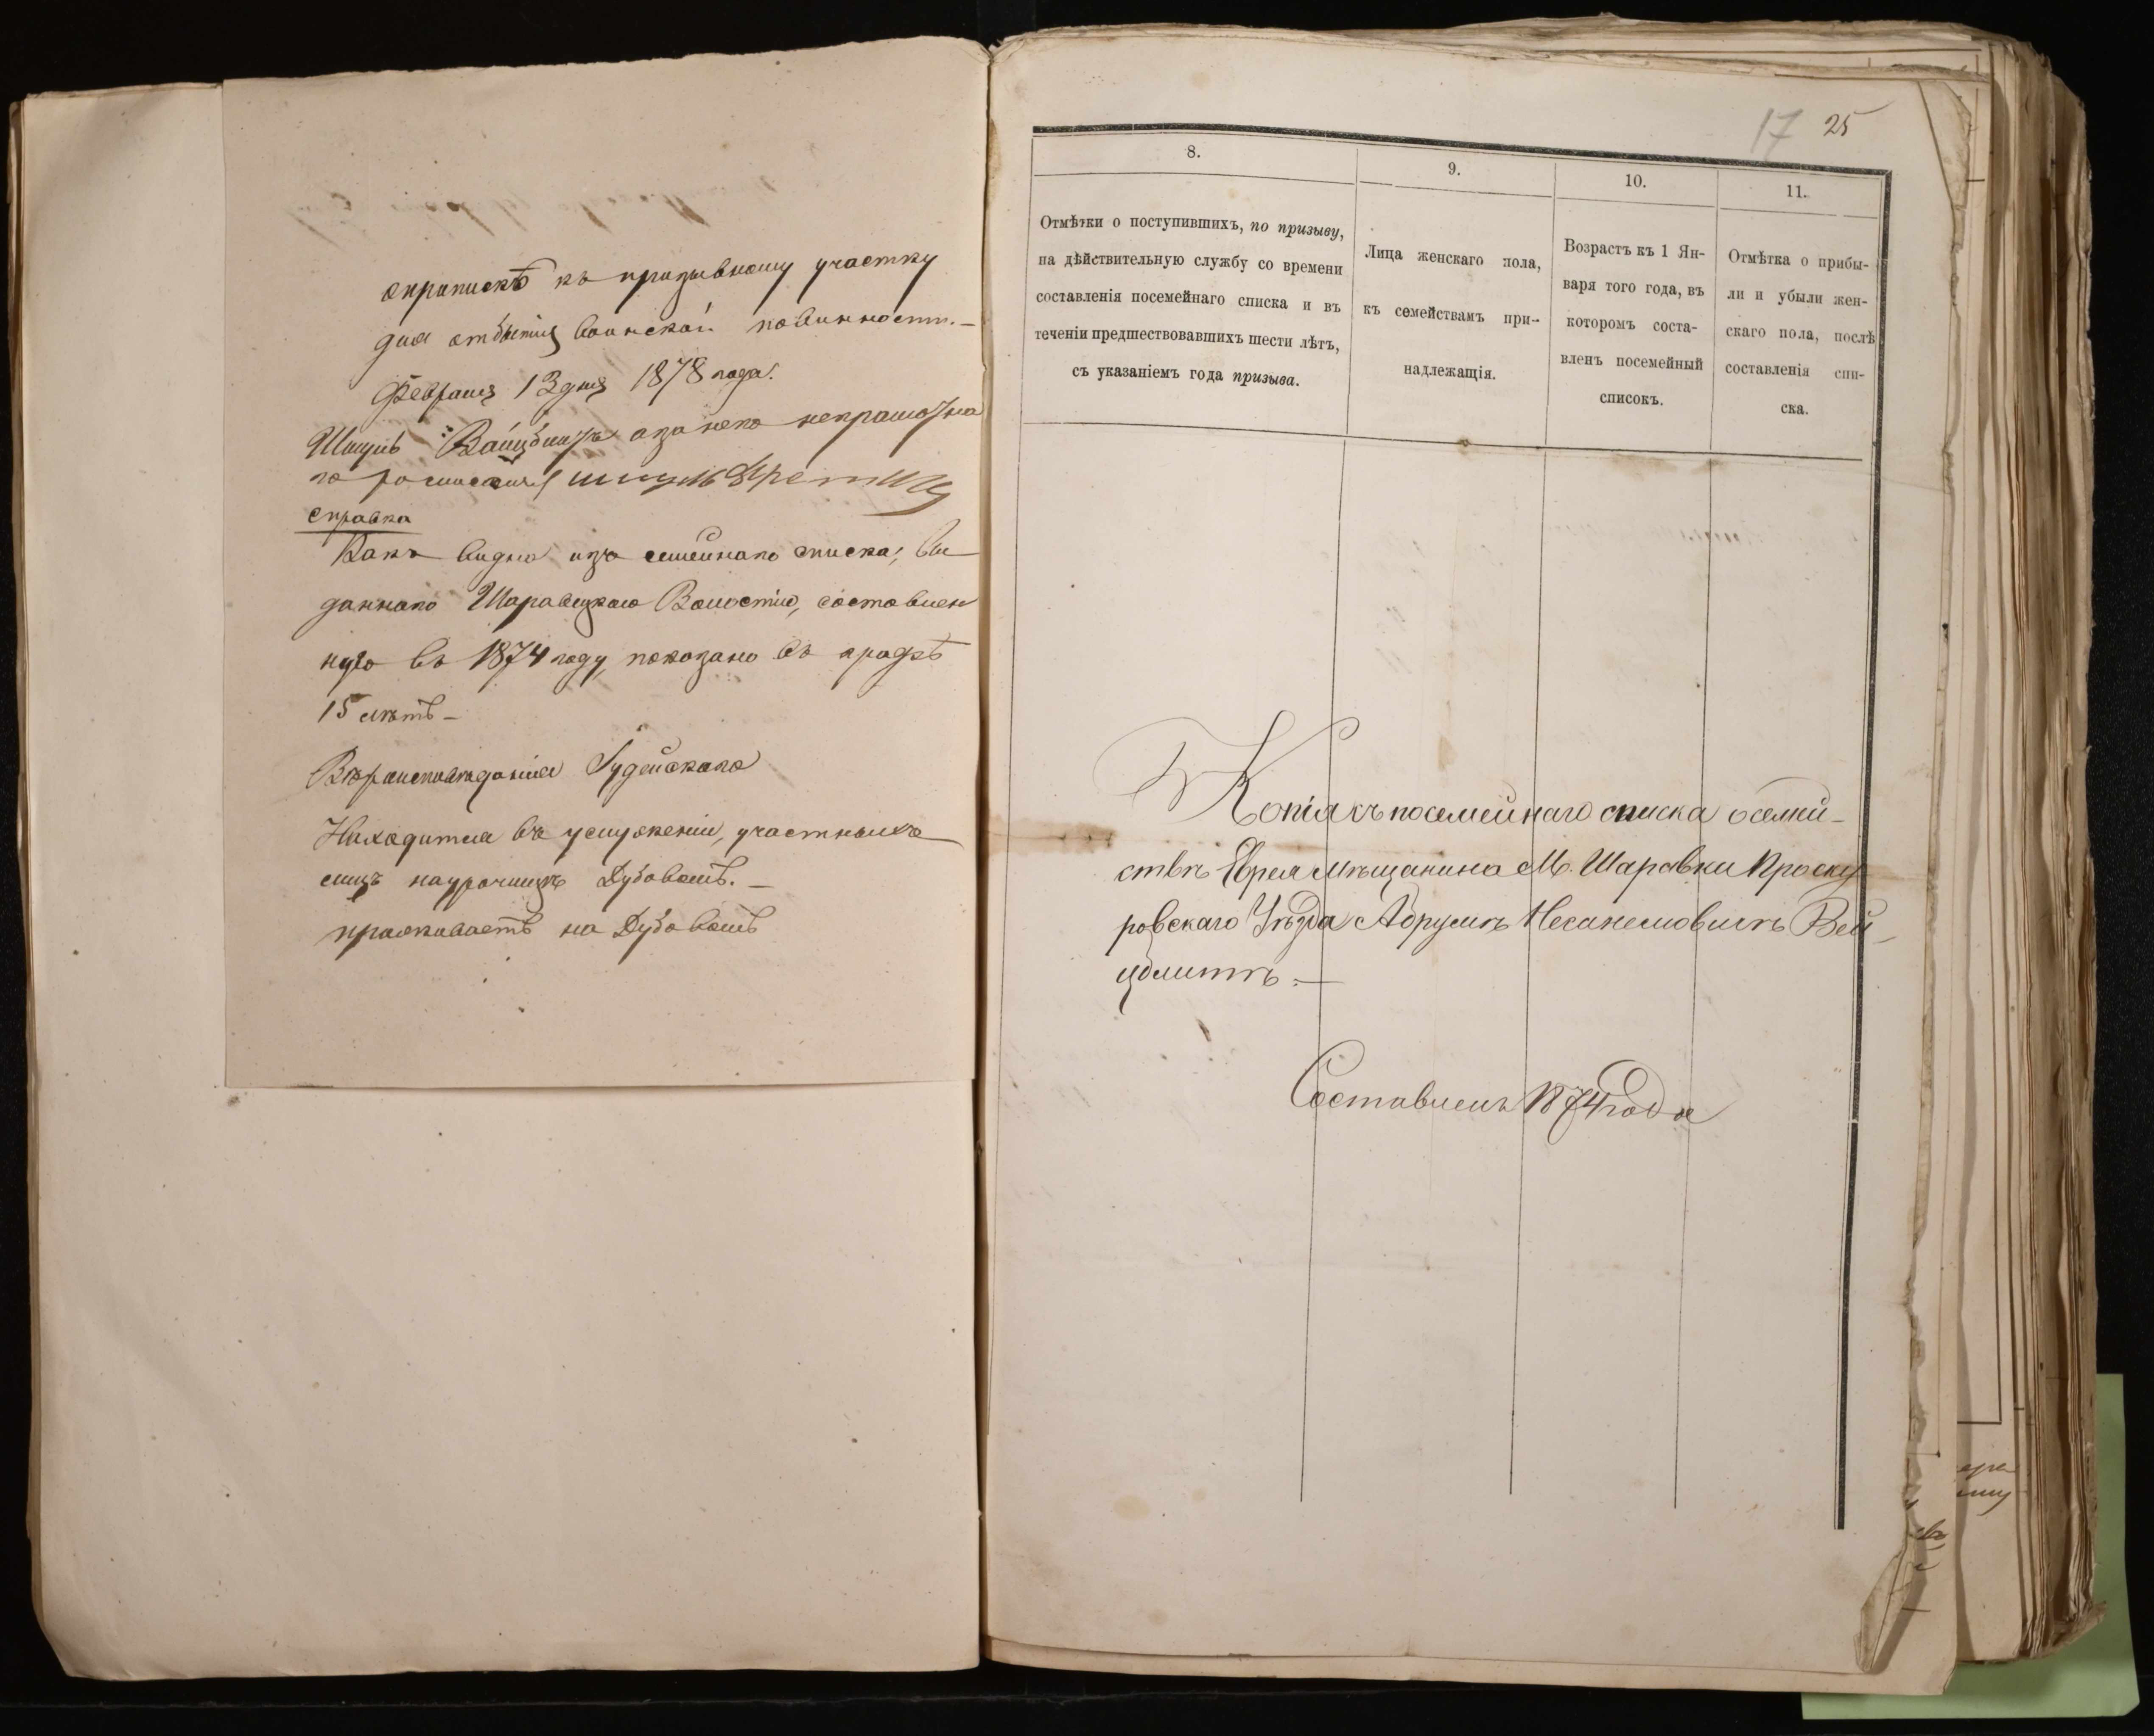 о припискѣ къ призывному участку
для отбытія воинской повинности. —
Февраля 13 дня 1878 года.
Шмуль Вайцблитъ а за него неграмотна
по росписался Шмуль
Справка
Какъ видно изъ семейнаго списка, вы
даннаго Шаравецкою Волостію, составлен
ного въ 1874 году, показано въ графѣ
15 лѣтъ —
Вѣроисповѣданія Іудейскаго
Находится въ услуженіи, участныхъ
лицъ на урочищѣ Дубовомъ. —
проживаетъ на Дубовомъ
17 25
8.
9.
10.
11.
Отмѣтки о поступившихъ, по призыву,
на дѣйствительную службу со времени
составленія посемейнаго списка и въ
теченіи предшествовавшихъ шести лѣтъ,
съ указаніемъ года призыва.
Лица женскаго пола,
къ семействамъ при-
надлежащія.
Возрастъ къ 1 Ян-
варя того года, въ
которомъ соста-
вленъ посемейный
списокъ.
Отмѣтка о прибы-
ли и убыли жен-
скаго пола, послѣ
составленія спи-
ска.
Копія съ посемейнаго списка о семей-
ствѣ Еврея Мѣщанина М. Шаравки Проску
ровскаго Уѣзда Абрумъ Нехемовичъ Вей-
цблитъ. —
Составленъ 1874 года